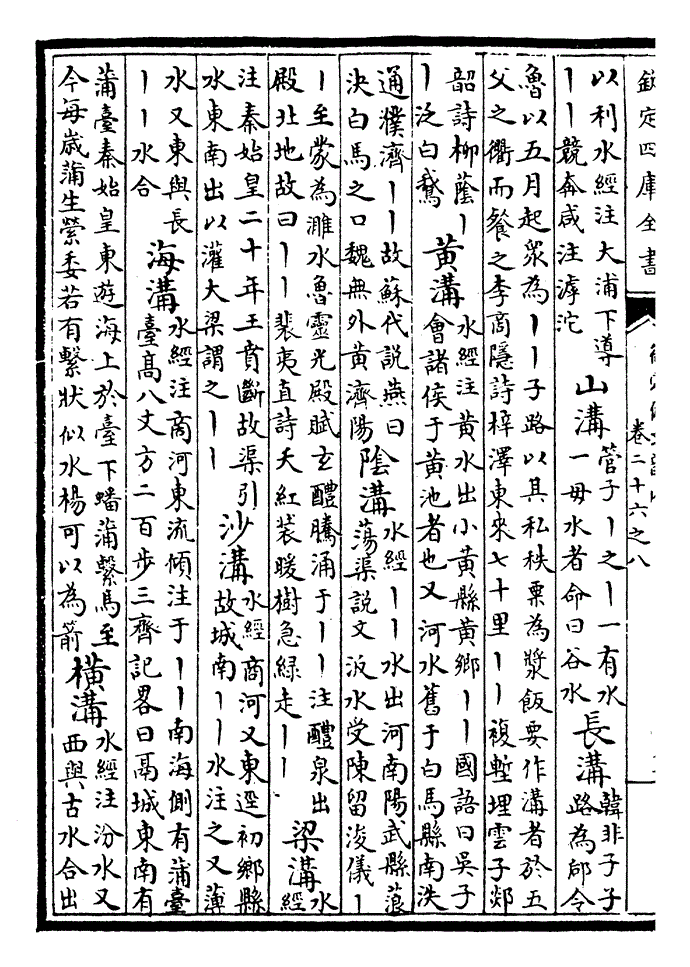 欽定四庫全書
卷二十六之八
以利水經注大浦下導
丨丨競奔咸注滹沱
山溝
管子丨之丨一有水
一毋水者命曰谷水
長溝
韓非子子
路為郈令
魯以五月起衆為丨丨子路以其私秩粟為漿飯要作溝者於五
父之衢而餐之李商隱詩梓澤東來七十里丨丨複塹埋雲子郯
韶詩柳蔭丨
丨泛白鵝
黃溝
水經注黃水出小黃縣黃鄉丨丨國語曰吳子
會諸侯于黃池者也又河水舊于白馬縣南泆
通濮濟丨丨故蘇代説燕曰
決白馬之口魏無外黃濟陽
陰溝
水經丨丨水出河南陽武縣蒗
蕩渠説文汳水受陳留浚儀丨
丨至蒙為濉水魯靈光殿賦玄醴騰涌于丨丨注醴泉出
殿北地故曰丨丨裴夷直詩夭紅裝暖樹急綠走丨丨
梁溝
水
經
注秦始皇二十年王賁斷故渠引
水東南出以灌大梁謂之丨丨
沙溝
水經商河又東逕初鄉縣
故城南丨丨水注之又薄
水又東與長
丨丨水合
海溝
水經注商河東流傾注于丨丨南海側有蒲臺
臺高八丈方二百步三齊記畧曰鬲城東南有
蒲臺秦始皇東遊海上於臺下蟠蒲繫馬至
今每歲蒲生縈委若有繫狀似水楊可以為箭
橫溝
水經注汾水又
西與古水合出